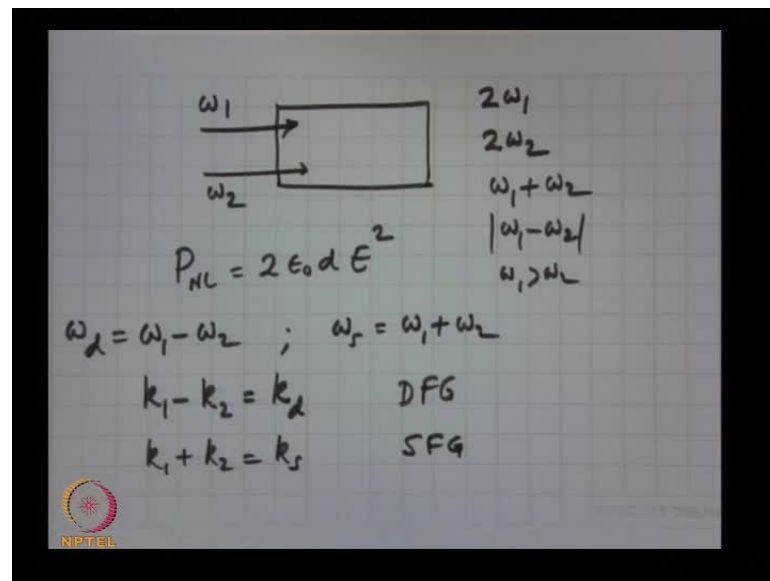 ω1
2ω1
2ω2
ω2
ω1+ω2
|ω1-ω2|
ω1>ω2
P_NL = 2 ε0 d E^2
ω_d = ω1-ω2 ; ω_s = ω1+ω2
k1-k2 = k_d DFG
k1+k2 = k_s SFG
NPTEL